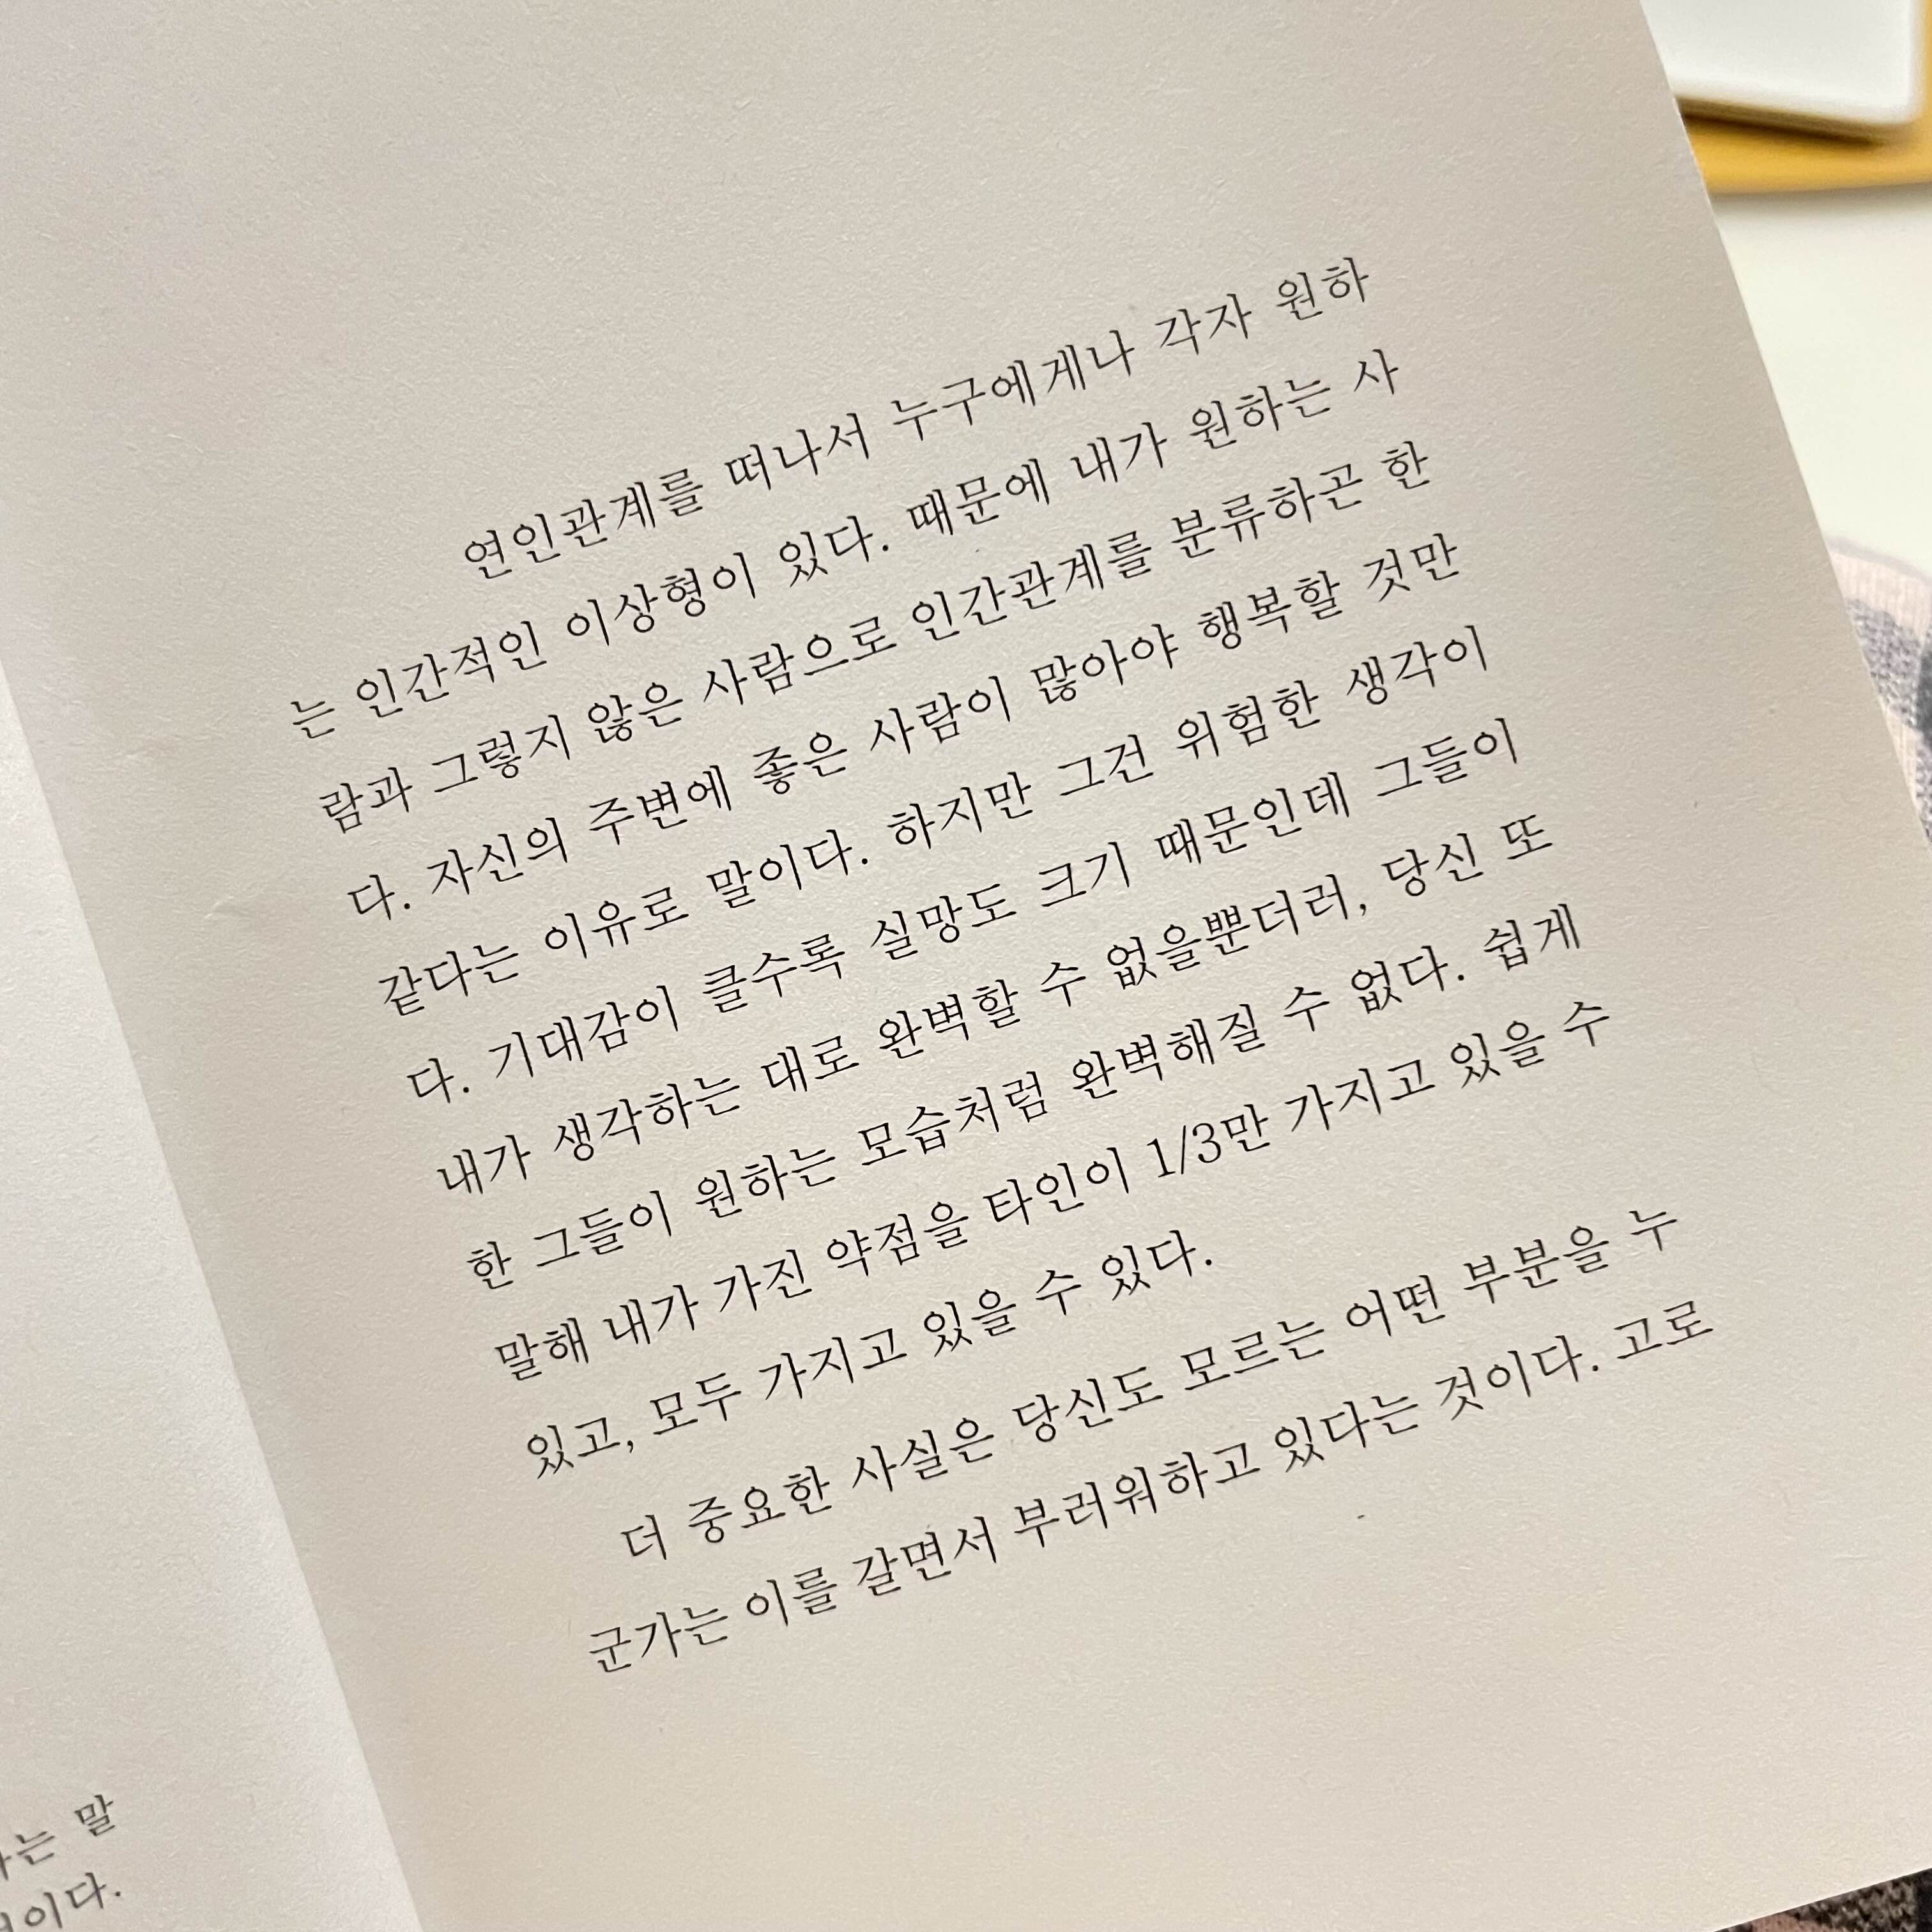 연인관계를 떠나서 누구에게나 각자 원하
는 인간적인 이상형이 있다. 때문에 내가 원하는 사
람과 그렇지 않은 사람으로 인간관계를 분류하곤 한
다. 자신의 주변에 좋은 사람이 많아야 행복할 것만
같다는 이유로 말이다. 하지만 그건 위험한 생각이
다. 기대감이 클수록 실망도 크기 때문인데 그들이
내가 생각하는 대로 완벽할 수 없을뿐더러, 당신 또
한 그들이 원하는 모습처럼 완벽해질 수 없다. 쉽게
말해 내가 가진 약점을 타인이 1/3만 가지고 있을 수
있고, 모두 가지고 있을 수 있다.
더 중요한 사실은 당신도 모르는 어떤 부분을 누
군가는 이를 갈면서 부러워하고 있다는 것이다. 고로
말